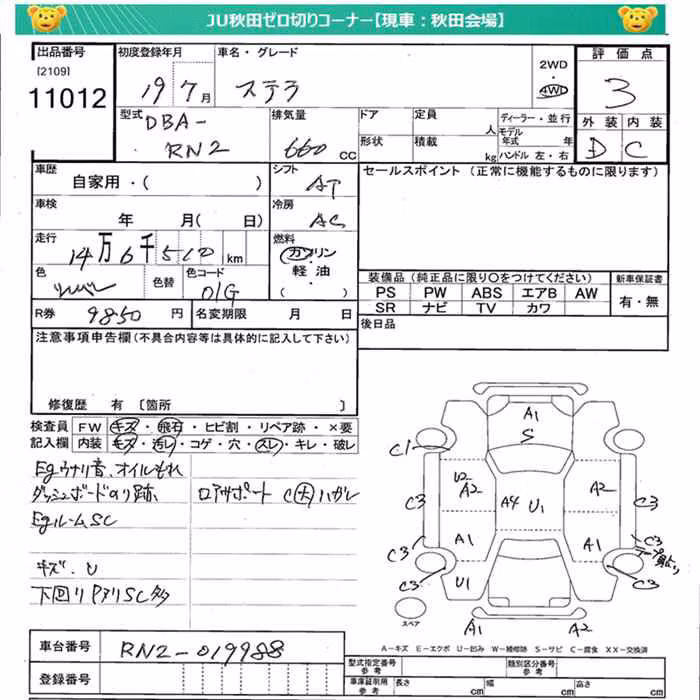 JU秋田ゼロ切りコーナー【現車：秋田会場】
出品番号 [2109] 11012
初度登録年月 19 7月
車名・グレード ステラ
2WD 4WD
評価点 3
外装 D 内装 C
型式 DBA-RN2
排気量 660 cc
ドア 定員 人
形状 積載 kg
ディーラー・並行
モデル年式 年
ハンドル 左・右
車歴 自家用・( )
シフト AT
セールスポイント (正常に機能するものに限ります)
車検 年 月( 日)
冷房 AC
走行 14万6千510 km
燃料 ガソリン 軽油・( )
色 シルバー 色替
色コード 01G
装備品 (純正品に限り○をつけてください)
PS PW ABS エアB AW
SR ナビ TV カワ
新車保証書 有・無
R券 9850 円
名変期限 月 日
後日品
注意事項申告欄 (不具合内容等は具体的に記入して下さい)
修復歴 有 [箇所 ]
検査員記入欄
FW キズ・飛石・ヒビ割・リペア跡・×要
内装 キズ・汚レ・コゲ・穴・スレ・キレ・破レ
Egウナリ音、オイルもれ
ダッシュボードのリ跡、 ロアサポート C大ハガレ
EgルームSC
キズ．U
下回りPアリSC多
A1
S
C1
U2 A2
A4 U1
A2
C3
C3
A1
A1
C3
C3 テープ貼り
C3
C3
U1
スペア
A1 A2
A－キズ E－エクボ U－凹み W－補修跡 S－サビ C－腐食 XX－交換済
車台番号 RN2-019988
登録番号
型式指定番号 参考
類別区分番号 参考
車庫証明用 参考 長さ cm 幅 cm 高さ cm